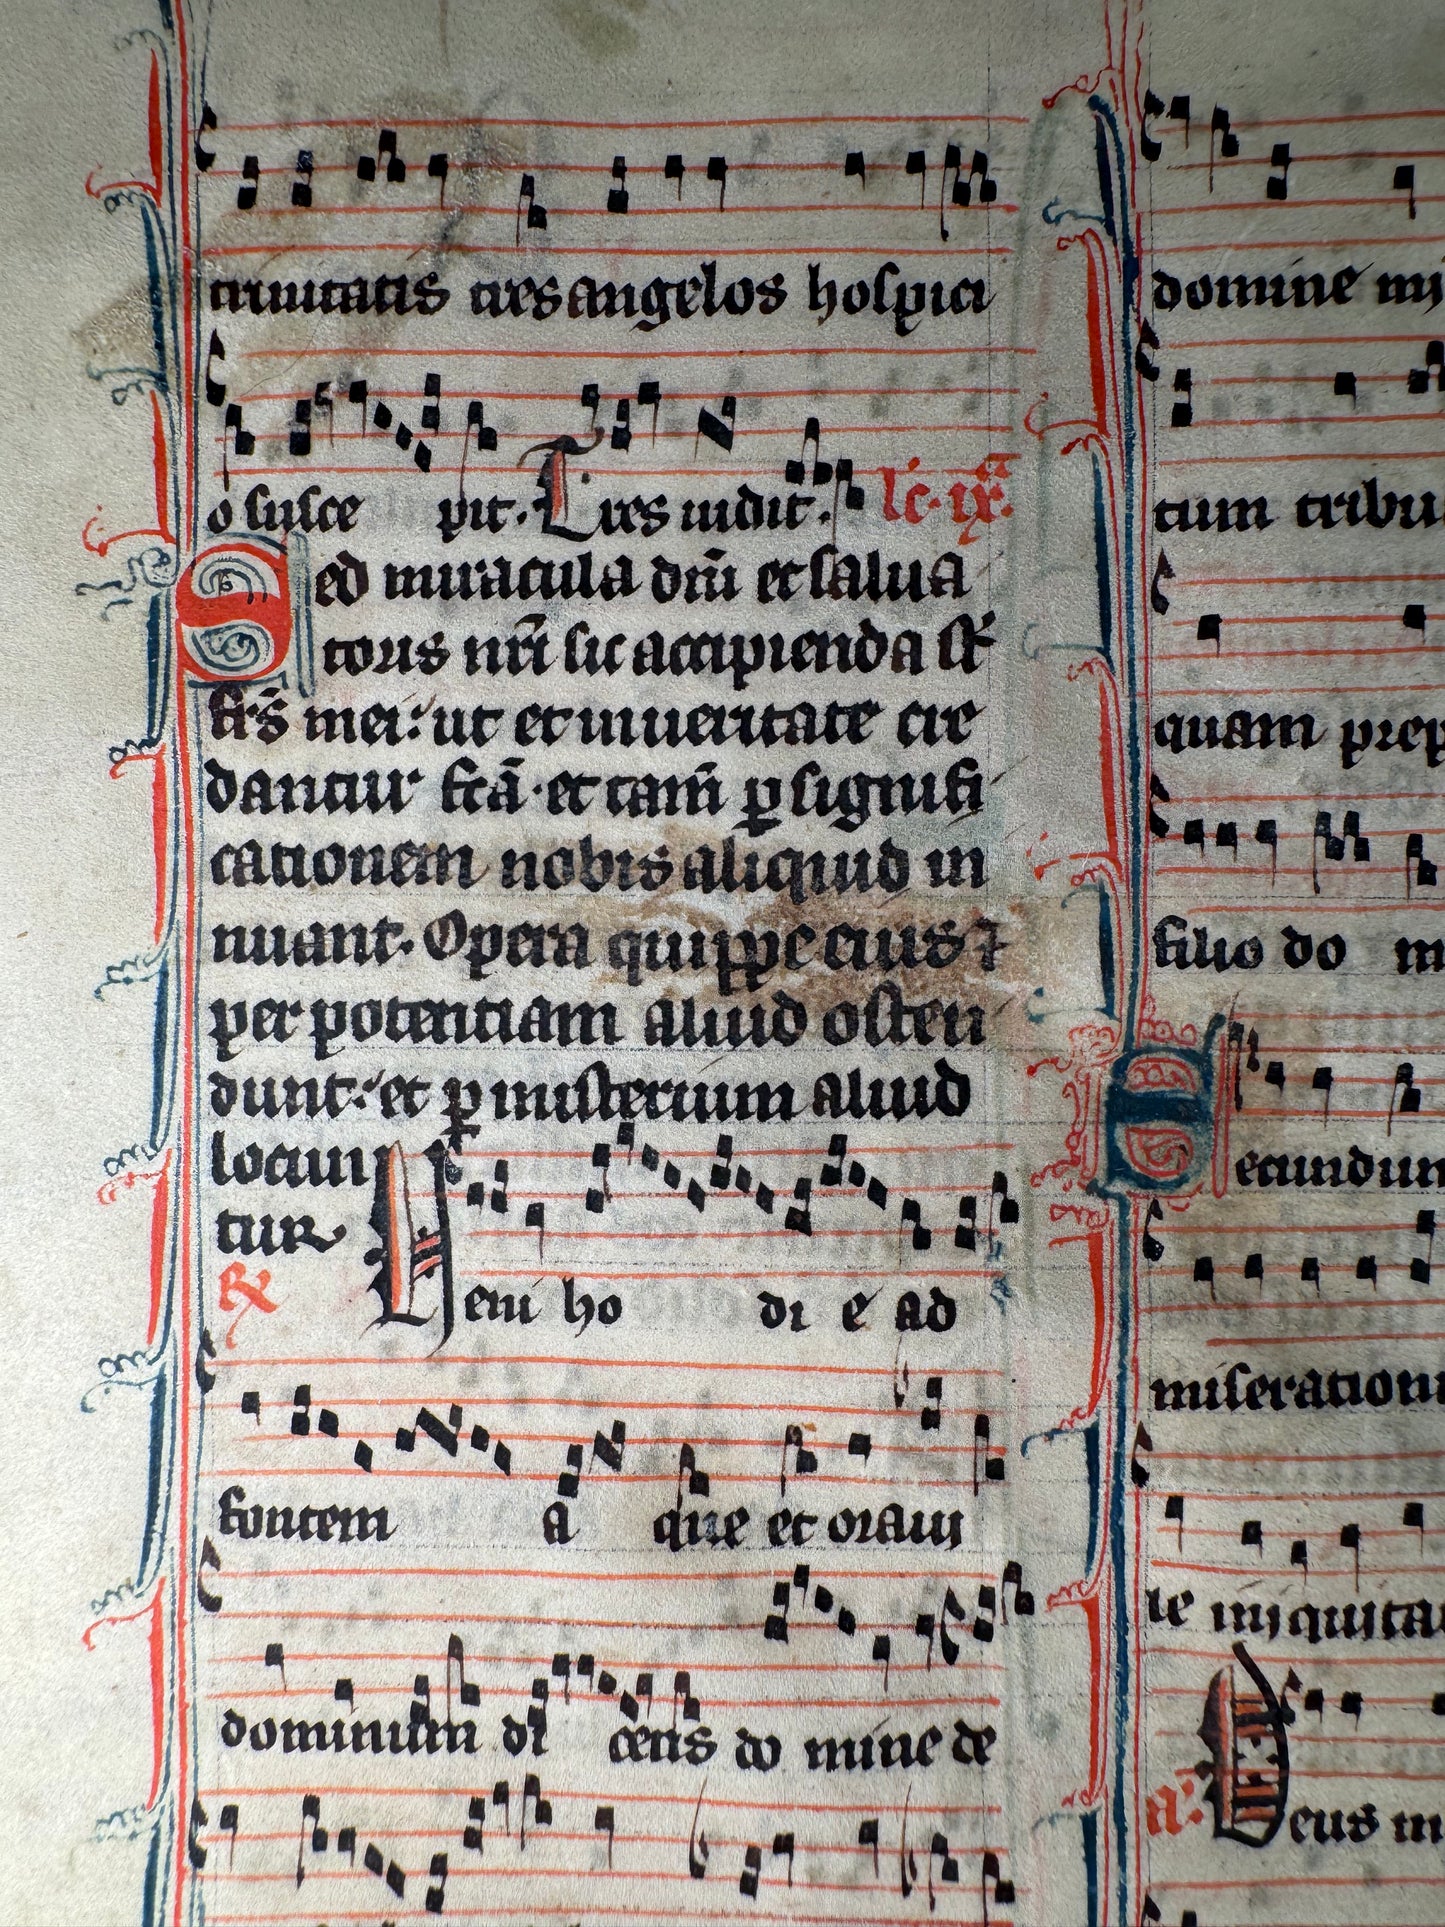 trinitatis tres angelos hospici
o susce pit. Tres uidit. lc. ixa.
Sed miracula dni et salua
toris nri sic accipienda st
frs mei: ut et in ueritate cre
dantur fca. et tam p signifi
cationem nobis aliquid in
nuant. Opera quippe eius ⁊
per potentiam aliud osten
dunt: et p misterium aliud
locun
tur
℞ Ueni ho di e ad
fontem a que et oraui
dominum di cens do mine de
domine mi
tum tribu
quam prep
filio do m
Secundum
miseration
le iniquita
a. Deus m